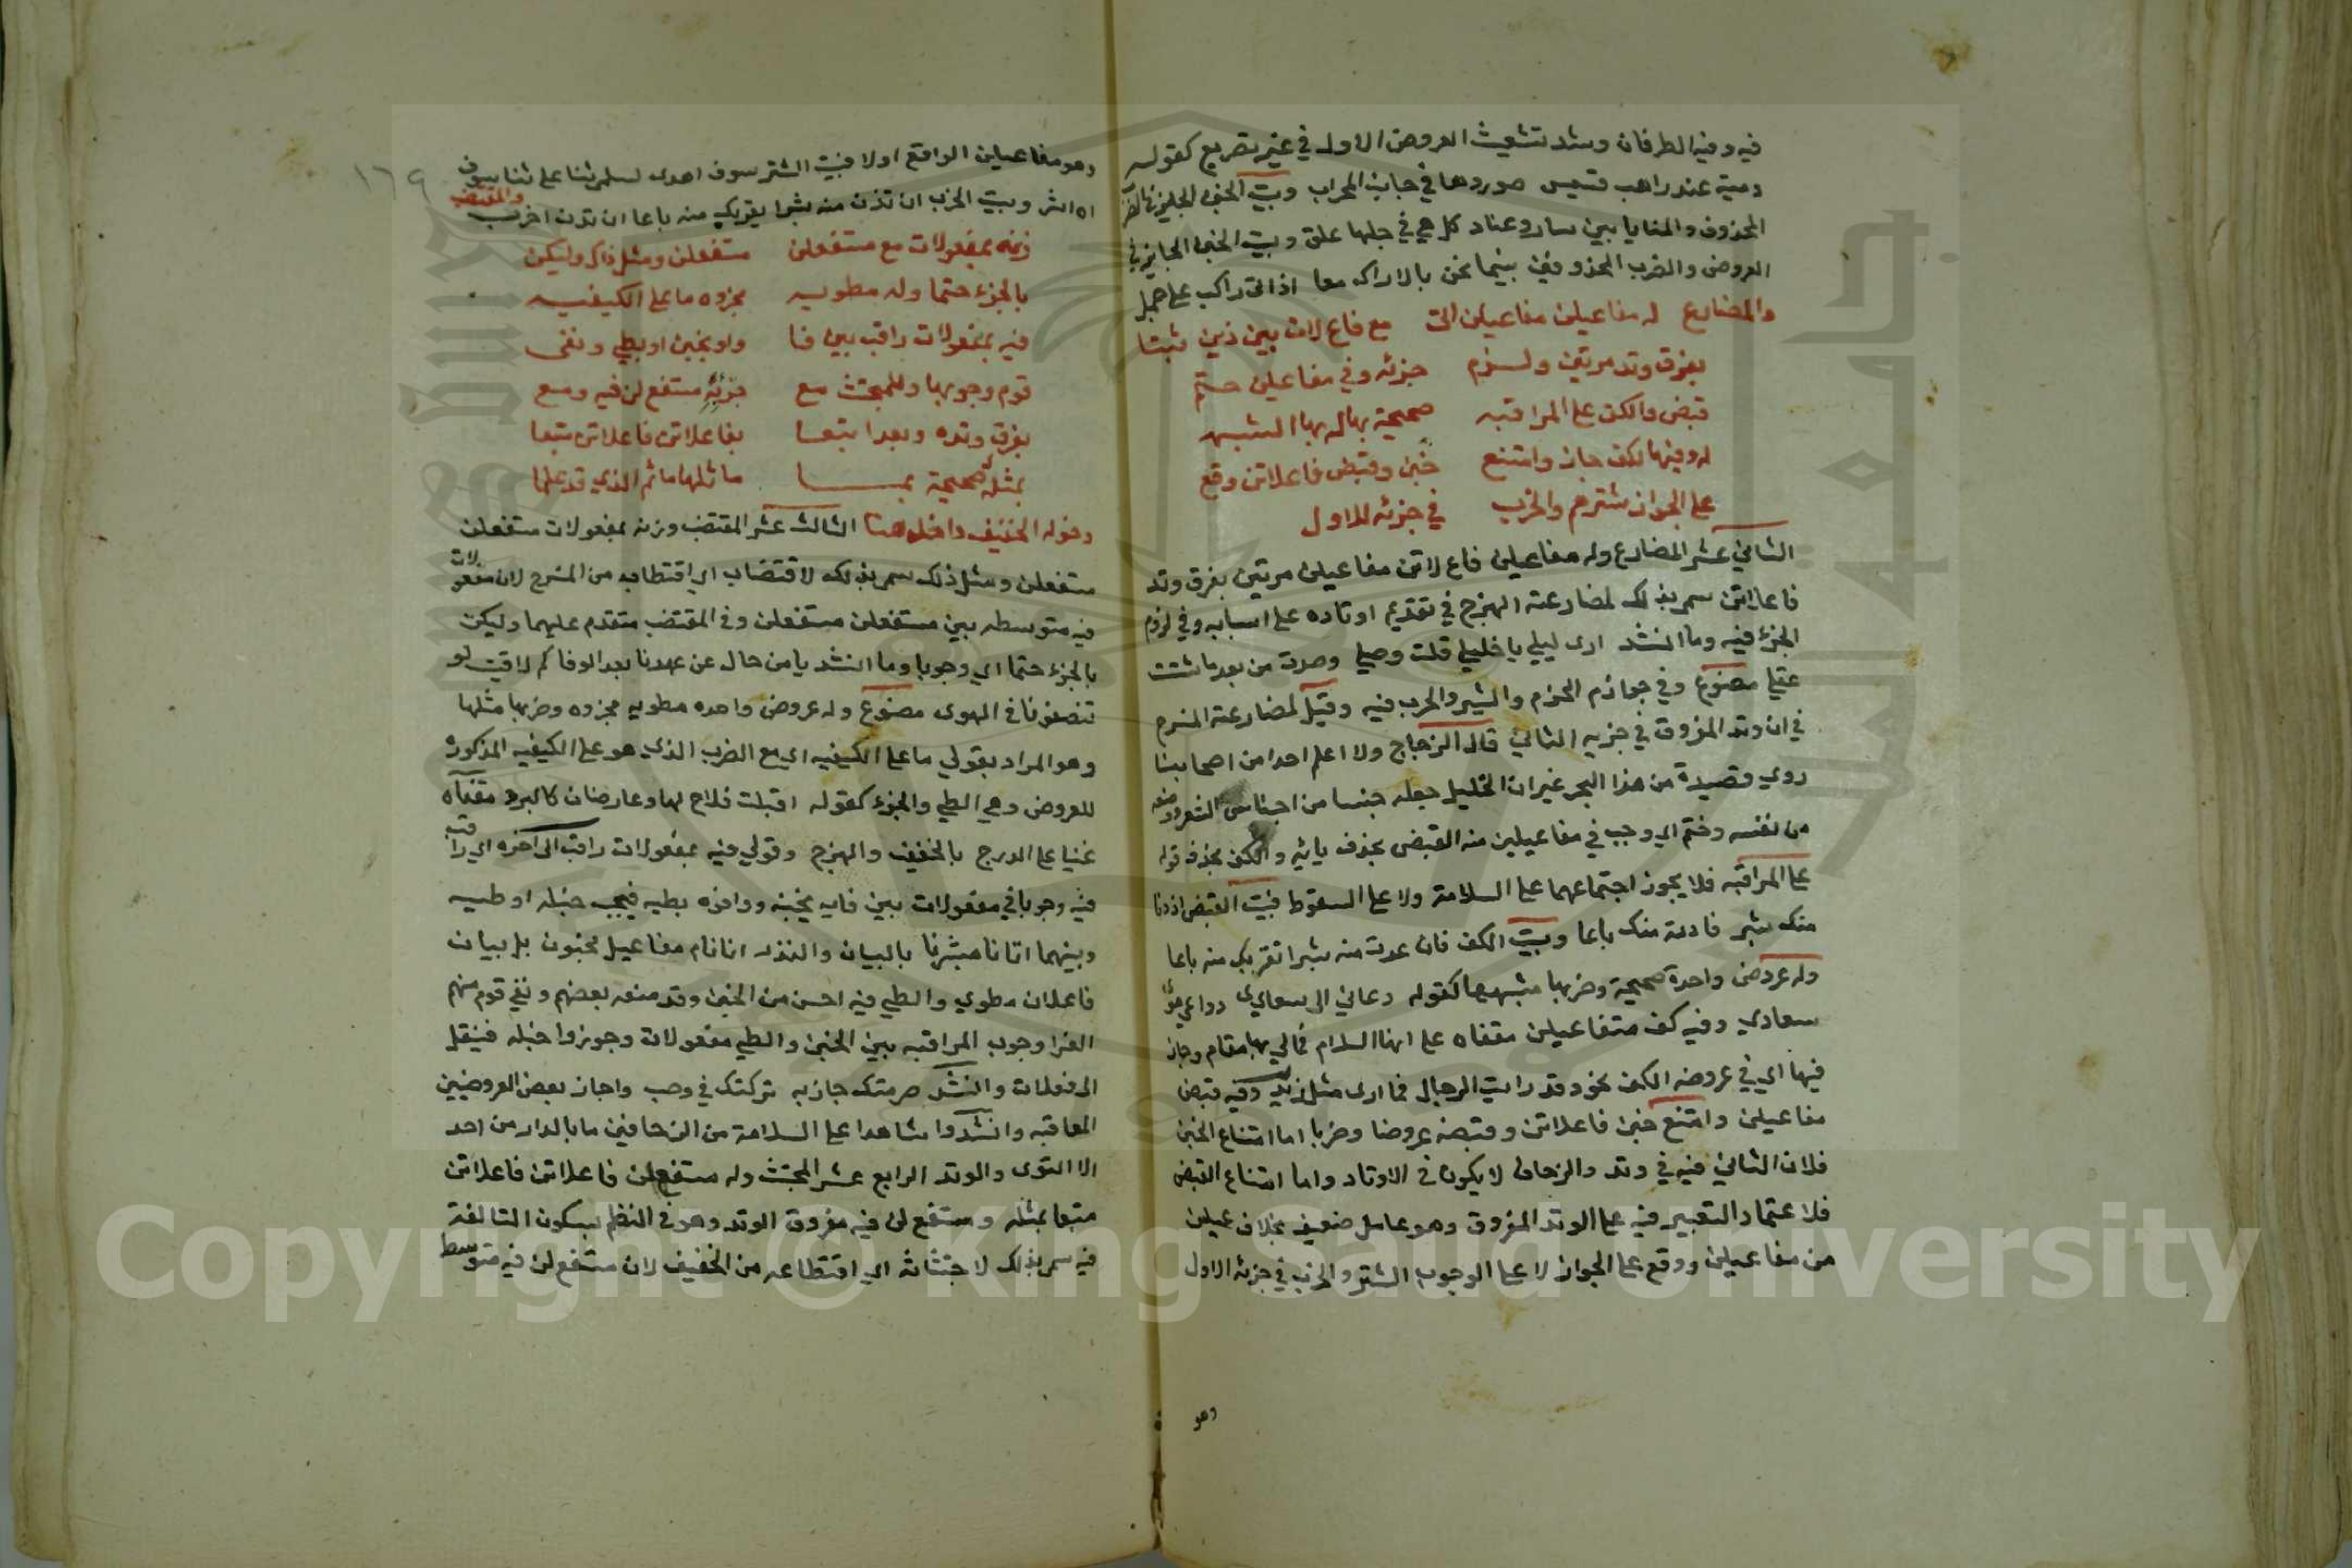 فيه وفيه الطرفان وشد تشعيث العروض الاولى في غير تصريع كقوله
دمية عند راهب قسيس صوروها في جانب المحراب وبيت الخبن
المحذوف والمنايا بين سار وغاد كل حي في حبلها علق وبيت الخبن الجايز في
العروض والضرب المحذوفين بينما نحن بالاراك معا اذ اتى راكب على جمله
والمضارع له مفاعيلن مفاعيلن اتى مع فاع لاتن بين ذين مثبتا
بفرق وتد مرتين ولزم جزئه وفي مفاعيلن حتم
قبض والكف على المراقبه صحيحة بها لها الشبه
له وفيها لكف جاز وامتنع خبن وقبض فاعلاتن وقع
على الجواز شترهم والخرب في جزئه الاول
الثاني عشر المضارع وله مفاعيلن فاع لاتن مفاعيلن مرتين بفرق وتد
فاعلاتن سمي بذلك لمضارعته الهزج في تقديم اوتاده على اسبابه وفي لزوم
الجزء فيه وما انشد ارى ليلي يا خليلي قلت وصلي وصدت من بعد ما شتت
عقلي مصنوع وفي جوازم الخرم والشتر والخرب فيه وقيل لمضارعته المنسرح
في ان وتد المفروق في جزيه الثاني قال الزجاج ولا اعلم احدا من اصحابنا
روي قصيدة من هذا البحر غير ان الخليل جعله جنسا من اجناس الشعر
من نفسه وختم اي وجب في مفاعيلين منه القبض بحذف يائه والكف بحذف نونه
على المراقبه فلا يجوز اجتماعهما على السلامة ولا على السقوط فبيت القبض اذ دنا
منك شبر فادنه منك باعا وبيت الكف فان عدت منه شبرا تقربك منه باعا
وله عروض واحدة صحيحة وضربها مشبهها كقوله دعاني الى سعادي دواعي هوى
سعادي وفيه كف متفاعيلن مقفاه على اهنا السلام فمالي بها مقام وجاز
فيها اي في عروضه الكف نحو وقد رايت الرجال فما ارى مثل زيد وفيه قبض
مفاعيلن وامتنع خبن فاعلاتن وقبضه عروضا وضربا اما امتناع الخبن
فلان الثاني فيه في وتد والزحاف لا يكون في الاوتاد واما امتناع القبض
فلاعتماد التعبير فيه على الوتد المفروق وهو عامل ضعيف بخلاف عيلن
من مفاعيلن ووقع على الجواز لا على الوجوب الشتر والخرب في جزئه الاول
وهو
١٦٩
وهو مفاعيلن الواقع اولا فبيت الشتر سوف اهدى لسلمى ثنا على ثنا سوف
اه اشر وبيت الخرب ان تدن منه شبرا يقربك منه باعا ان تدن اخرب والمقتضب
زنه بمفعولات مع مستفعلن مستفعلن ومثل ذاك وليكن
بالجزء حتما وله مطويه مجزوه ما على الكيفيه
فيه بمفعولات راقب بين فا واو بخبن او بطي ونفى
قوم وجوبها وللمجتث مع جزئه مستفع لن فيه ومع
بفرق وتده وبعدا بتعا بفاعلاتن فاعلاتن متبعا
بمثله صحيحة بما ماثلها ماثم الذي قد علما
وقوله الخفيف داخل هنا الثالث عشر المقتضب وزنه بمفعولات مستفعلن
مستفعلن ومثل ذلك سمي بذلك لاقتضاب اي اقتطابه من المنسرح لان مفعولات
فيه متوسطه بين مستفعلن مستفعلن وفي المقتضب متقدم عليهما وليكن
بالجزء حتما اي وجوبا وما انشد يا من حال عن عهدنا بعد الوفا كم لاقيت لو
تنصفونا في الهوى مصنوع وله عروض واحده مطويه مجزوه وضربها مثلها
وهو المراد بقولي ما على الكيفيه اي مع الضرب الذي هو على الكيفيه المذكورة
للعروض وهي الطي والجزء كقوله اقبلت فلاح لها عارضان كالبرد مقفاه
غنيا على الدرج بالخفيف والهزج وقولي فيه بمفعولات راقب الى اخره اي راقب
فيه وجوبا في مفعولات بين فايه بخبنه وواوه بطيه فيجب خبنله او طيه
وبينهما اتانا مبشرنا بالبيان والنذر اتانام مفاعيل مخبون بل بيان
فاعلان مطوي والطي فيه احسن من الخبن وقد منعه بعضهم ونفي قوم منهم
الفرا وجوب المراقبه بين الخبن والطي مفعولات وجوزوا خبله فينقل
الى فعلات وانشد صرمتك جازيه تركتك في وصب واجاز بعض العروضيين
المعاقبه وانشدوا شاهدا على السلامة من الزحافين ما بالدار من احد
الا النوى والوتد الرابع عشر المجتث وله مستفع لن فاعلاتن فاعلاتن
متبعا بمثله ومستفع لن فيه مفروق الوتد وهو في النظم بسكون الثالثة
فيه سمي بذلك لاجتثاثه اي اقتطاعه من الخفيف لان مستفع لن فيه متوسط